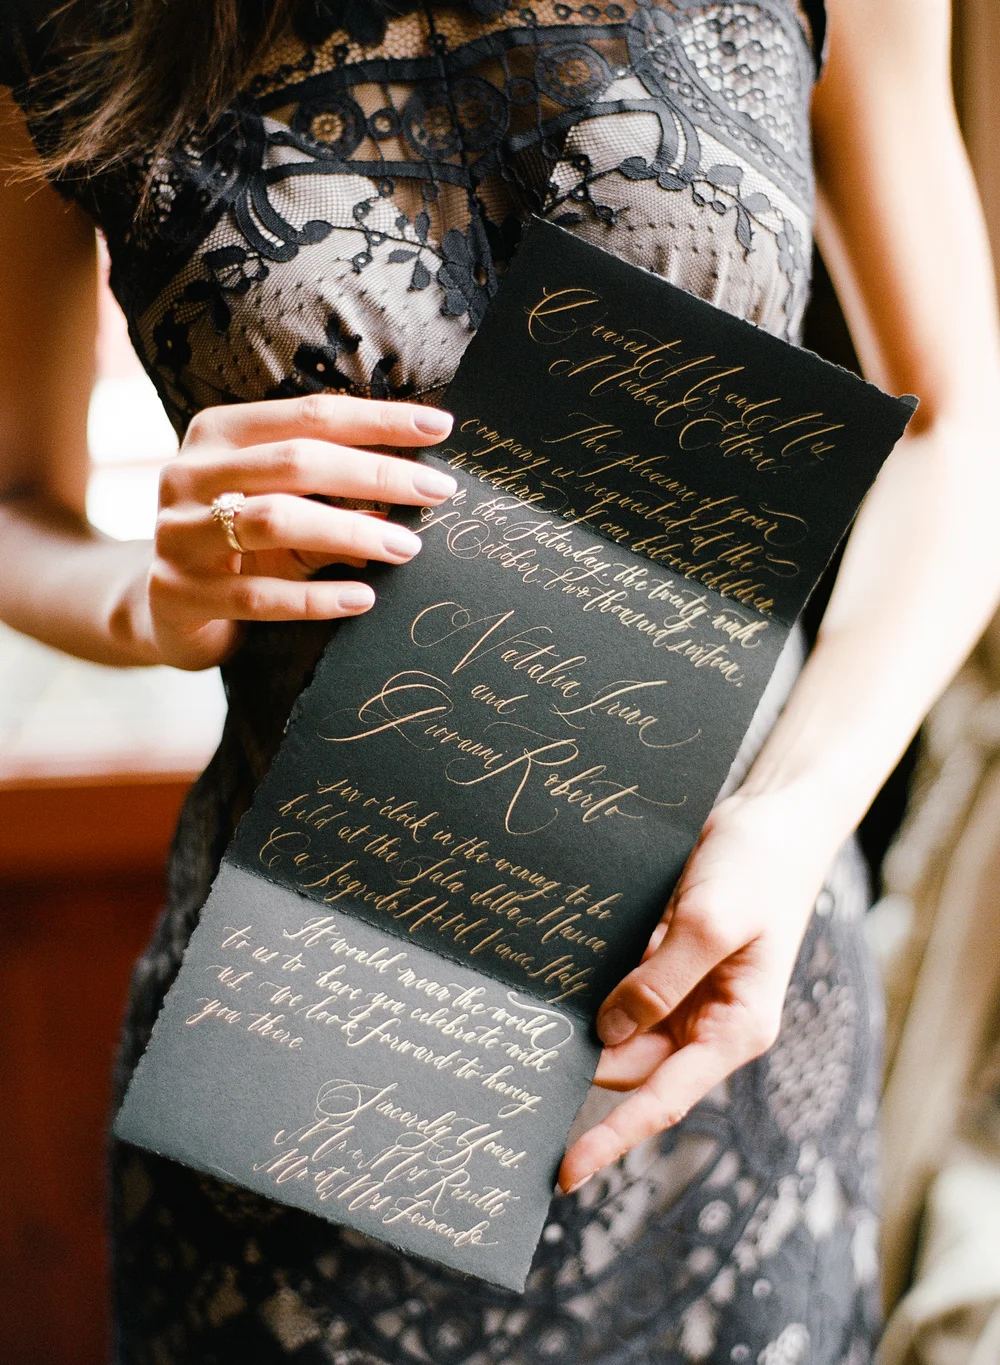 Dearest Mr. and Mrs
Michael Efford
The pleasure of your
company is requested at the
wedding of your beloved children
on the Saturday, the twenty ninth
of October, two thousand sixteen,
Natalia Irina
and
Giovanni Roberto
six o'clock in the evening to be
held at the Sala della Musica
Ca' Sagredo Hotel, Venice, Italy
It would mean the world
to us to have you celebrate with
us. We look forward to having
you there.
Sincerely Yours,
Mr et Mrs Rosetti
Mr et Mrs Fernando